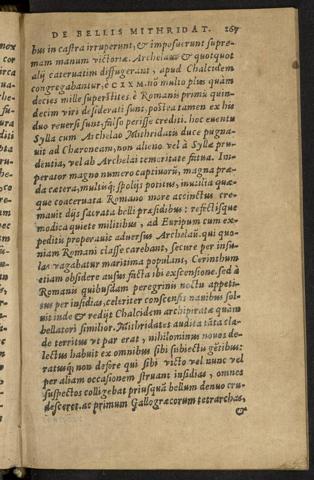 DE BELLIS MITHRIDAT. 267
bus in castra irruperunt, & imposuerunt supre-
mam manum victoriæ. Archelaus & quotquot
alij cateruatim diffugerant, apud Chalcidem
congregabantur, è CIXM. nō multo plus quàm
decies mille superstites: è Romanis primū quin-
decim viri desiderati sunt, postea tamen ex his
duo reuersi sunt, falso perisse crediti. hoc euentu
Sylla cum Archelao Mithridatis duce pugna-
uit ad Charoneam, non alieno vel à Syllæ pru-
dentia, vel ab Archelai temeritate fictua. Im-
perator magno numero captiuorū, magna præ-
da cætera, multisq; spolijs potitus, inutilia quæ-
que coaceruata Romano more accinctus cre-
mauit dijs sacrata belli præsidibus: refectisque
modica quiete militibus, ad Euripum cum ex-
peditis properauit aduersus Archelaū. qui quo-
niam Romani classe carebant, secure per insu-
las vagabatur maritima populans, Cerinthum
etiam obsidere ausus facta ibi exscensione. sed à
Romanis quibusdam peregrinis noctu appeti-
tus per insidias, celeriter conscensis nauibus sol-
uit inde & redijt Chalcidem archipiratæ quàm
bellatori similior. Mithridates audita tāta cla-
de territus vt par erat, nihilominus nouos de-
lectus habuit ex omnibus sibi subiectis gētibus:
ratusq; non defore qui sibi victo vel nunc vel
per aliam occasionem struant insidias, omnes
suspectos colligebat priusquā bellum denuo cru-
desceret. ac primum Gallogræcorum tetrarchas,
&